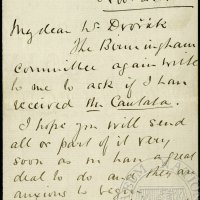 My dear Mr Dvořák
The Birmingham
committee again write
to me to ask if I have
received the Cantata.
I hope you will send
all or part of it very
soon as we have a great
deal to do and they are
anxious to begin